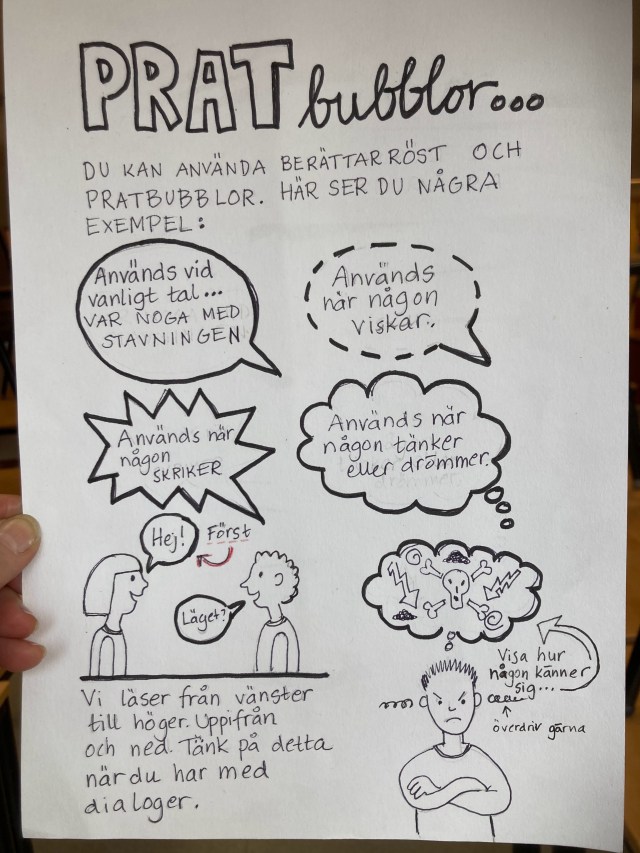 PRAT bubblor...
DU KAN ANVÄNDA BERÄTTARRÖST OCH
PRATBUBBLOR. HÄR SER DU NÅGRA
EXEMPEL:
Används vid
vanligt tal...
VAR NOGA MED
STAVNINGEN
Används
när någon
viskar.
Används när
någon
SKRIKER
Används när
någon tänker
eller drömmer.
Hej!
Först
Läget?
Vi läser från vänster
till höger. Uppifrån
och ned. Tänk på detta
när du har med
dialoger.
Visa hur
någon känner
sig...
överdriv gärna